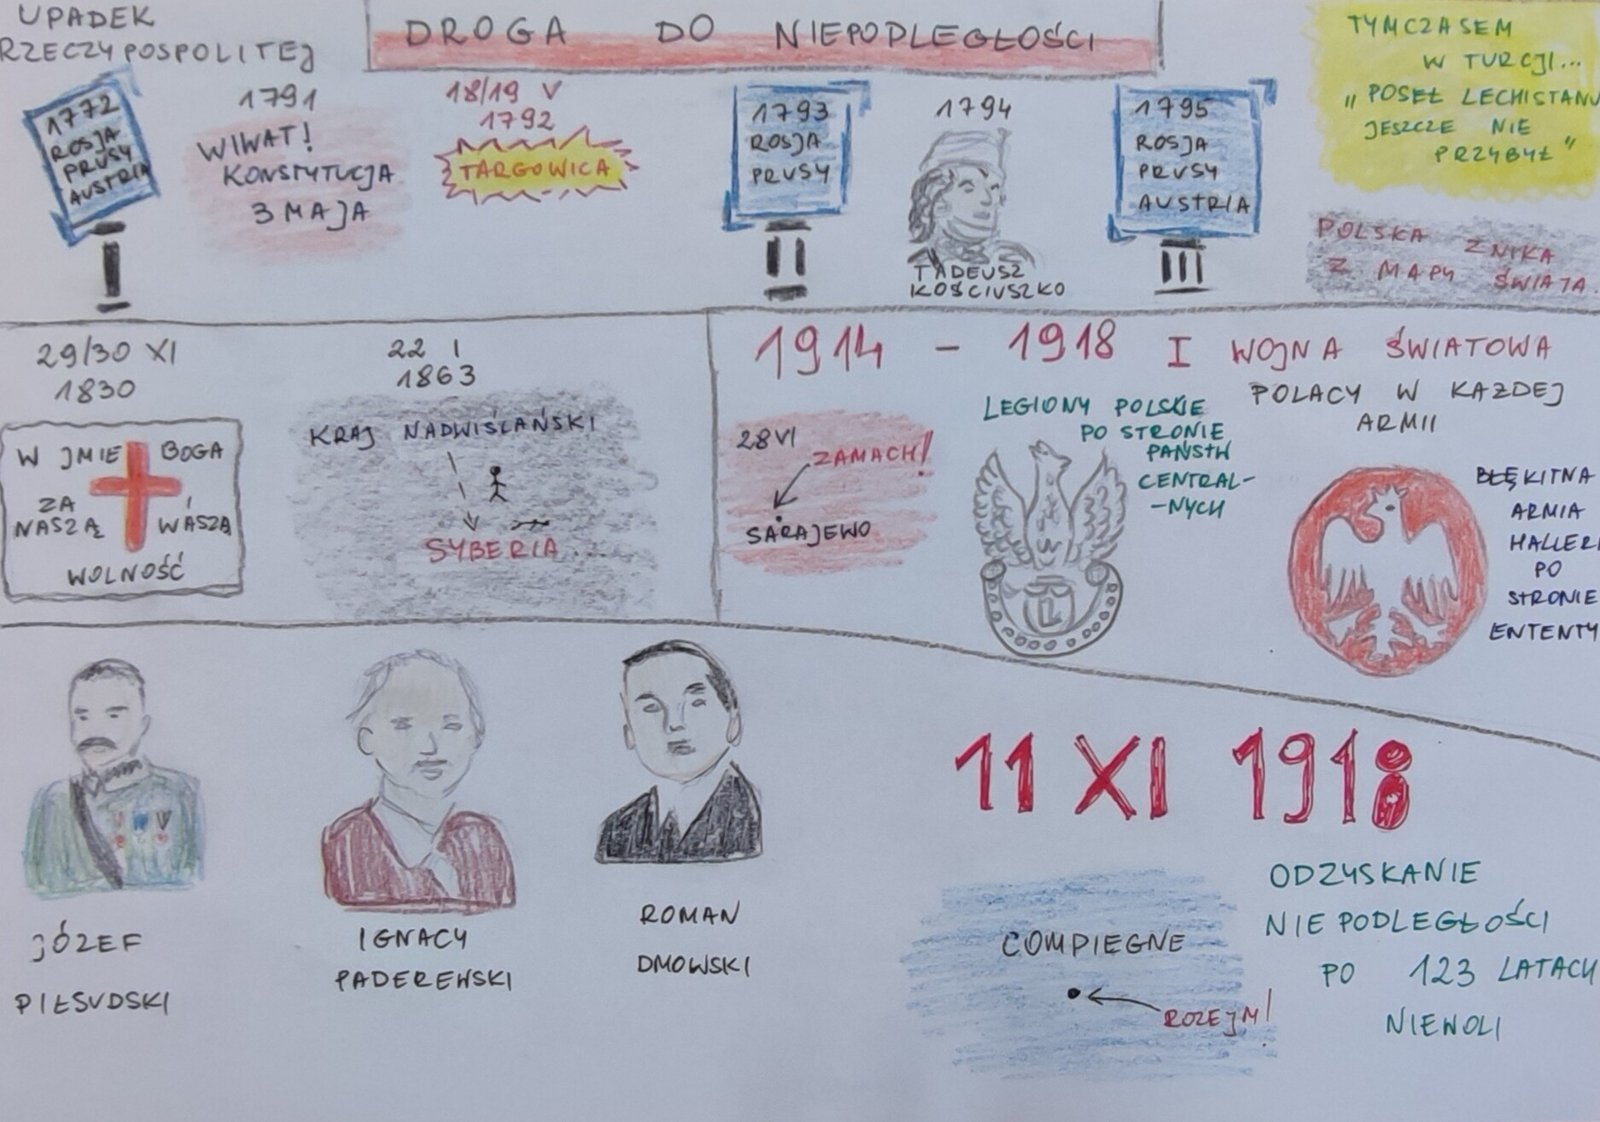 UPADEK
RZECZYPOSPOLITEJ
DROGA DO NIEPODLEGŁOŚCI
1772
ROSJA
PRUSY
AUSTRIA
I
1791
WIWAT!
KONSTYTUCJA
3 MAJA
18/19 V
1792
TARGOWICA
1793
ROSJA
PRUSY
II
1794
TADEUSZ
KOŚCIUSZKO
1795
ROSJA
PRUSY
AUSTRIA
III
TYMCZASEM
W TURCJI...
„POSEŁ LECHISTANU
JESZCZE NIE
PRZYBYŁ”
POLSKA ZNIKA
Z MAPY ŚWIATA.
29/30 XI
1830
W JMIE BOGA
ZA I
NASZĄ WASZĄ
WOLNOŚĆ
22 I
1863
KRAJ NADWIŚLAŃSKI
SYBERIA
1914 - 1918 I WOJNA ŚWIATOWA
28 VI
ZAMACH!
SARAJEWO
LEGIONY POLSKIE
PO STRONIE
PAŃSTW
CENTRAL-
-NYCH
L
POLACY W KAZDEJ
ARMII
BŁĘKITNA
ARMIA
HALLERA
PO
STRONIE
ENTENTY
JÓZEF
PIŁSUDSKI
IGNACY
PADEREWSKI
ROMAN
DMOWSKI
11 XI 1918
COMPIEGNE
ROZEJM!
ODZYSKANIE
NIEPODLEGŁOŚCI
PO 123 LATACH
NIEWOLI